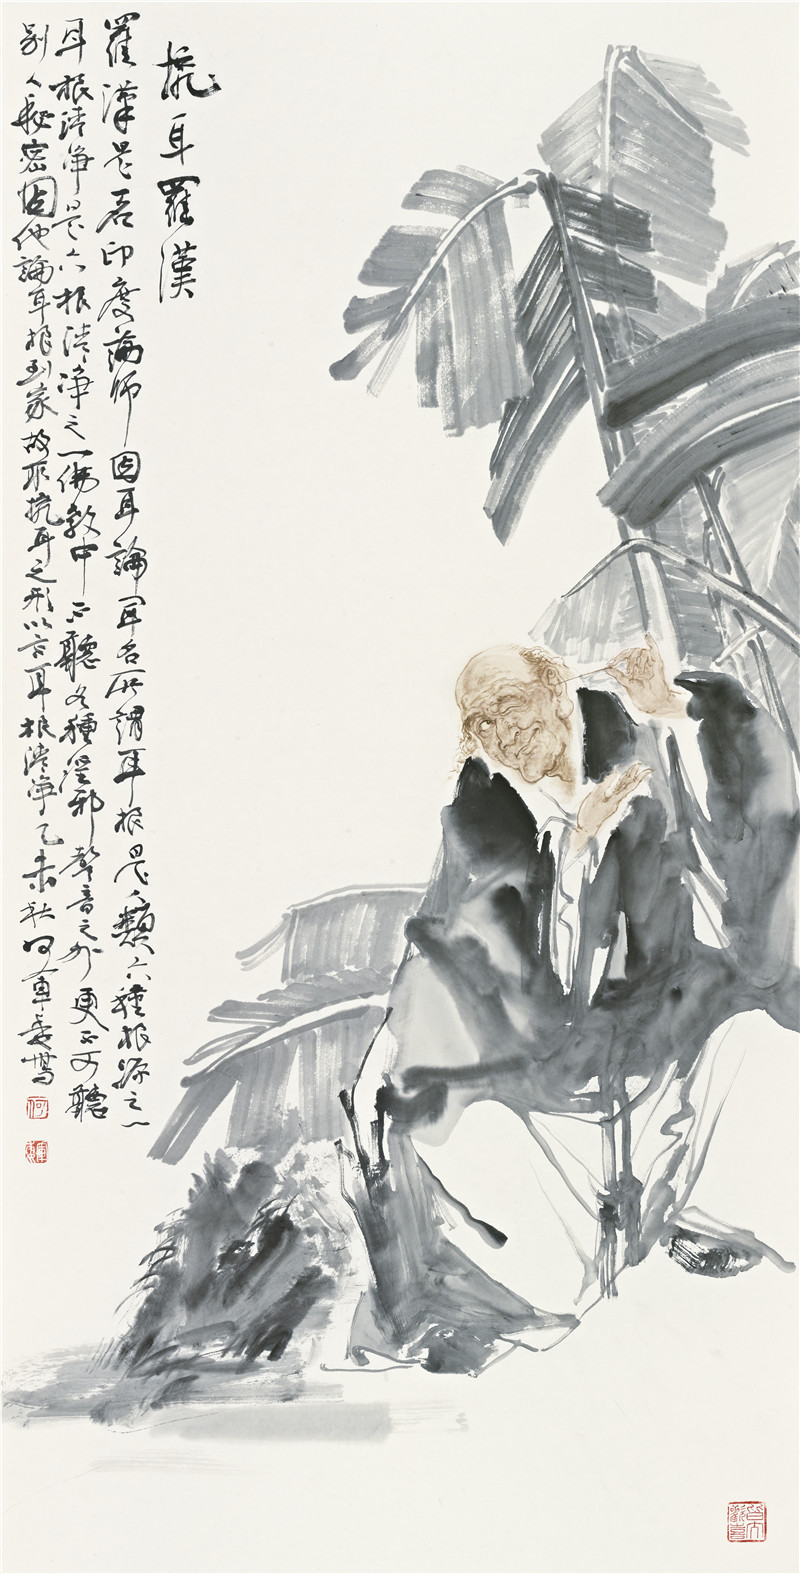 挖耳羅漢
羅漢是印度論師因耳論聞名所謂耳根是人類六種根源之一
耳根清淨是六根清淨之一佛教中不聽各種淫邪聲音之外更不可聽
別人秘密因他論耳根到家故取挖耳之形以示耳根清淨乙未秋何軍委寫
何
軍委
皆大歡喜